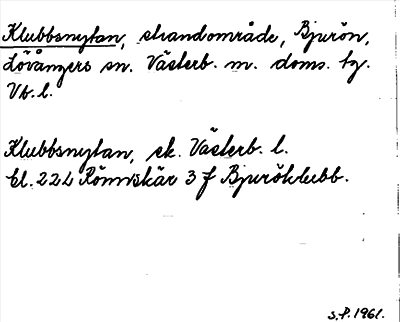 Klubbsnytan, strandområde, Bjurön,
Lövångers sn. Västerb. m. doms. tg.
Vb. l.
Klubbsnytan, sk. Västerb. l.
El. 22L Römnskär 3 f Bjuröklubb.
S.P. 1961.